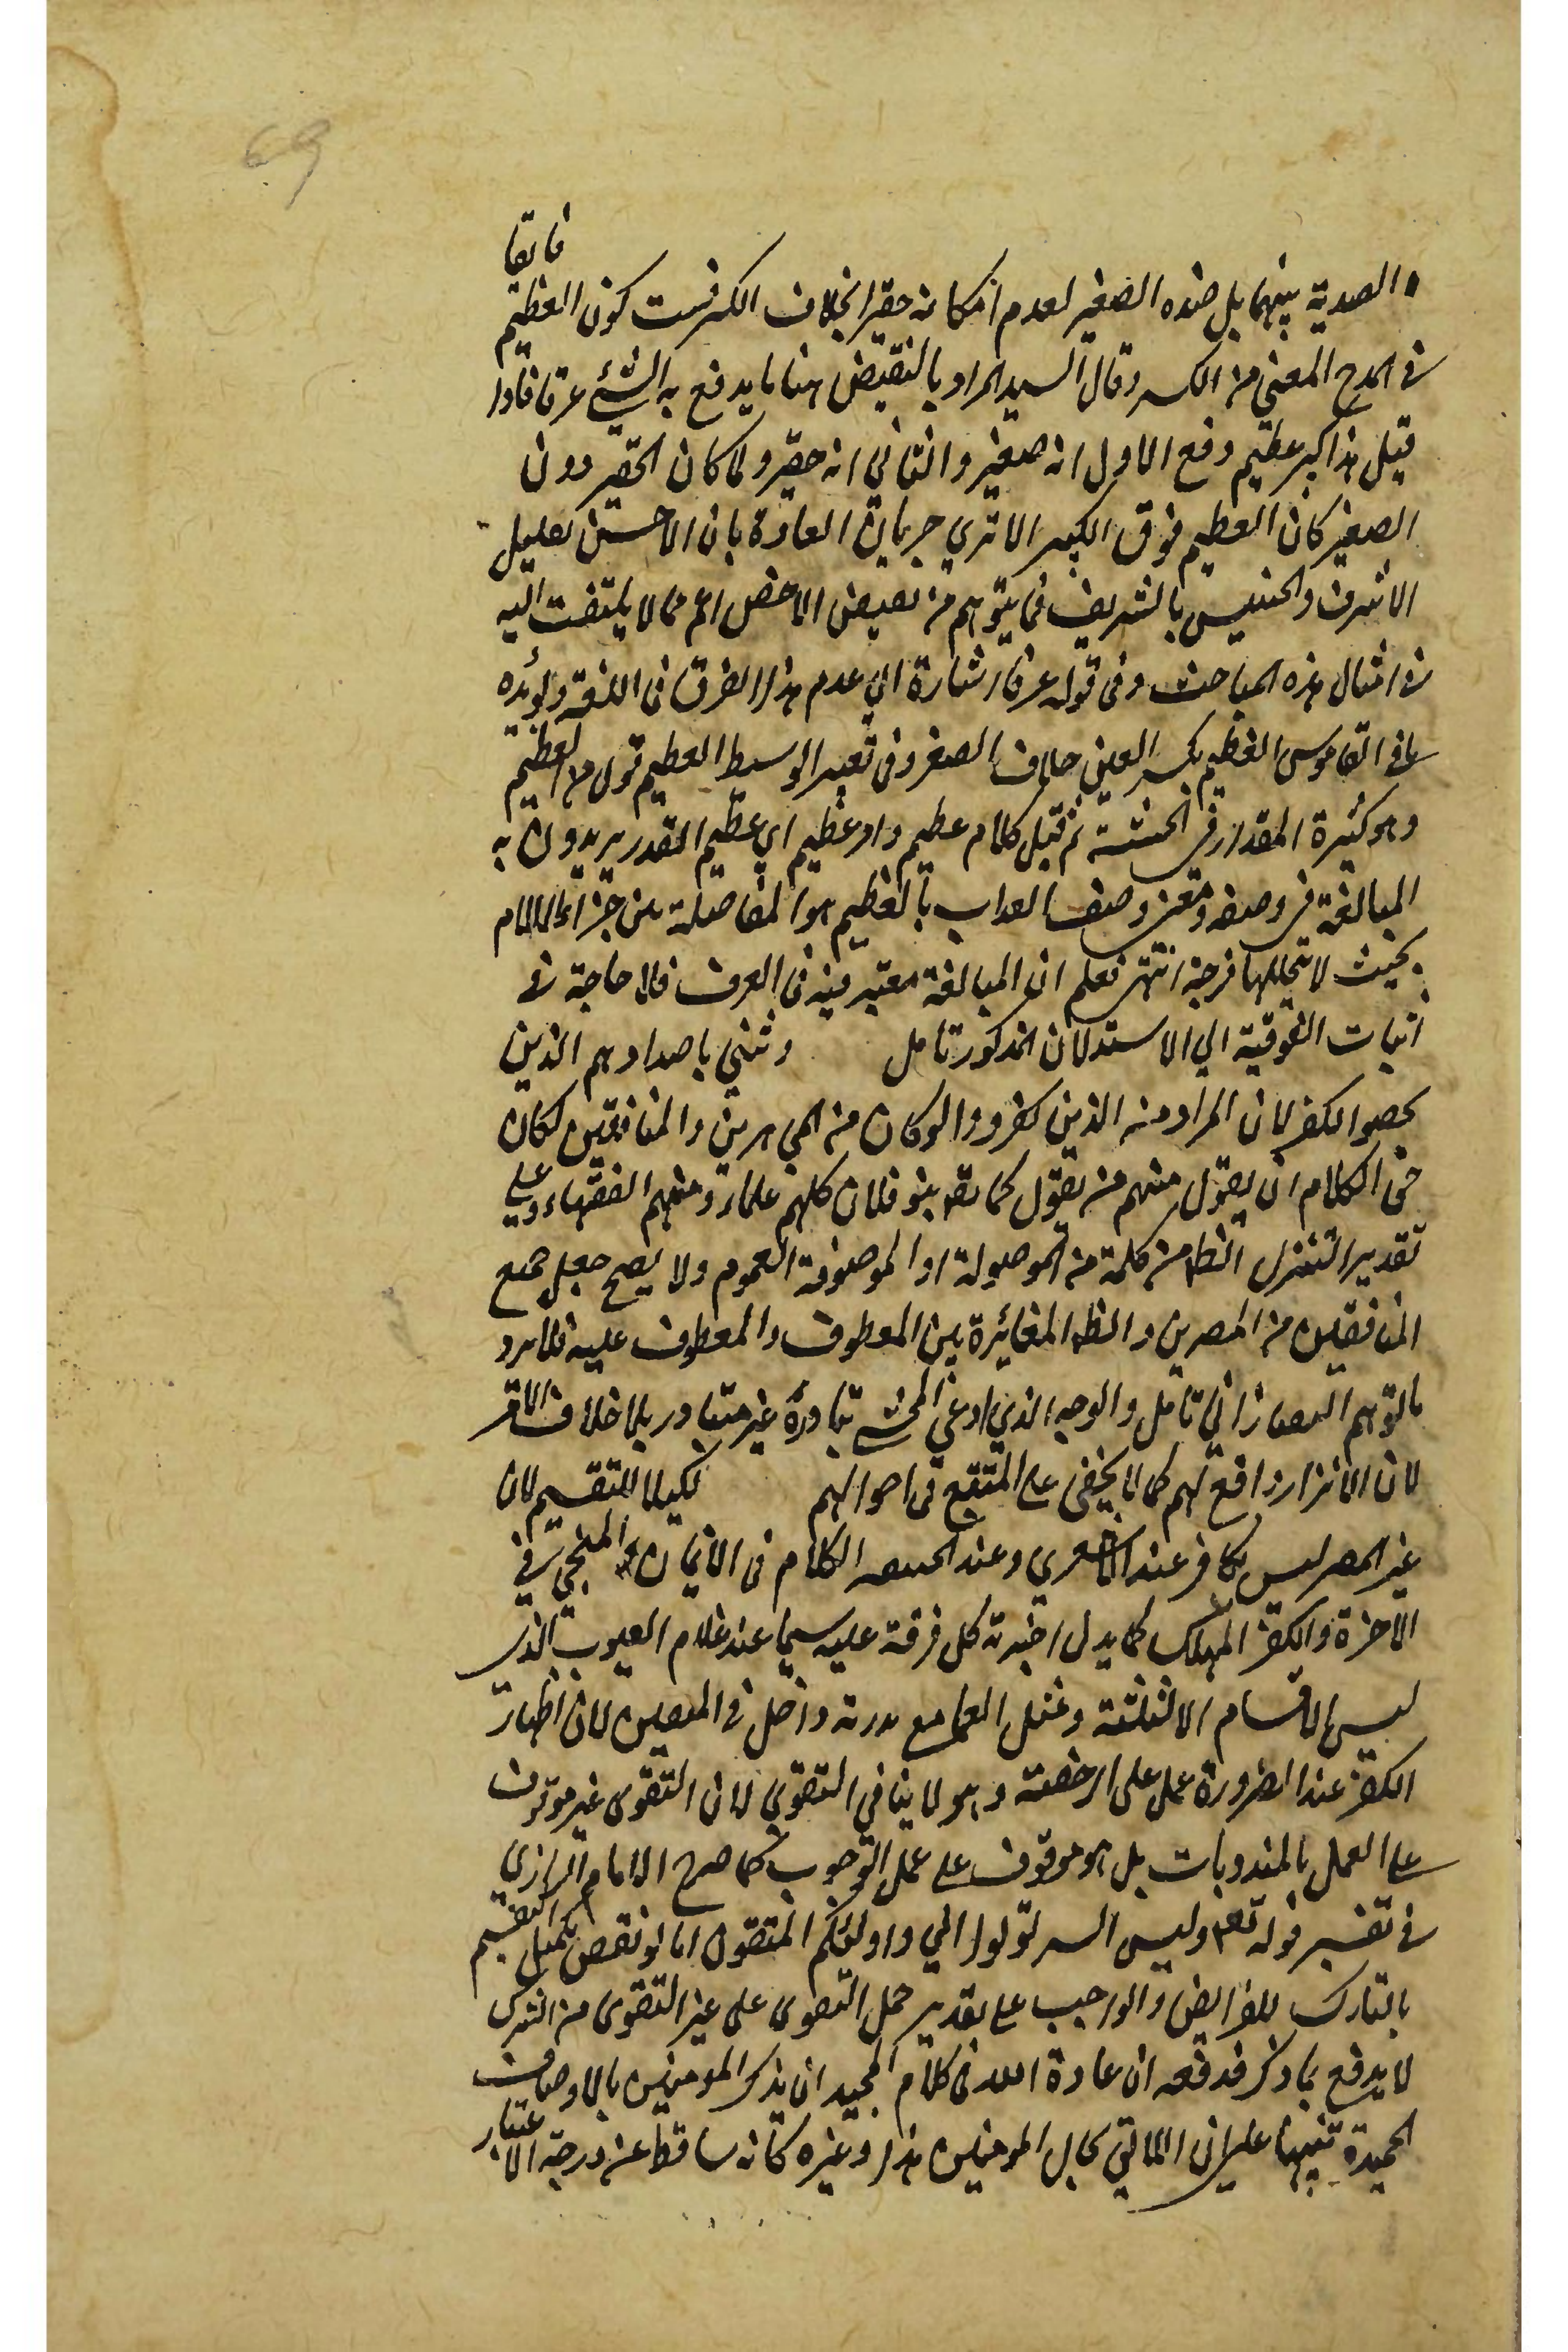 69
فائقا
الصدية بينهما بل ضده الصغير لعدم امكانه حقيرا بخلاف الكبر فثبت كون العظيم
في المدح المعنى من الكبير وقال السيد المراد بالنقيض هنا ما يدفع به الشئ عرفا فاذا
قيل هذا كبير عظيم دفع الاول انه صغير والثاني انه حقير ولما كان الحقير دون
الصغير كان العظيم فوق الكبير الا تري جريان العادة بان الاحسن تعليل
الاشرف والخسيس بالشريف فما يتوهم من نقيض الاخص اعم مما لا يلتفت اليه
في امثال هذه المباحث وفي قوله عرفا اشارة الي عدم هذا الفرق في اللغة ويؤيده
ما في القاموس العظيم بكسر العين خلاف الصغر وفي تفسير الوسيط العظيم فعيل من العظم
وهو كثرة المقدار في الجثة ثم قيل كلام عظيم وامر عظيم اي عظيم القدر يريدون به
المبالغة في وصفه ومعنى وصف العداب بالعظيم هو المفاصلة بين اجزاء الالام
بحيث لا تتخللها فرجة انتهى فعلم ان المبالغة معتبر فيه في العرف فلا حاجة في
اثبات الفوقية الي الاستدلال المذكور تامل وثني باضدادهم الذين
محضوا الكفر لان المراد منه الذين كفروا ولو كان من المجاهرين والمنافقين لكان
حق الكلام ان يقول منهم من يقول كما يقال بنو فلان كلهم علماء ومنهم الفقهاء وعلى
تقدير التنزل الظ من كلمة من الموصولة او الموصوفة العموم ولا يصح جعل جمع
المنافقين من المصرين والظ المغائرة بين المعطوف والمعطوف عليه فلا يرد
ما توهم التفتازاني تامل والوجه الذي ادعى المحشي تبادره غير متبادر بل خلاف الاقر
لان الانذار واقع لهم كما لا يخفى على المتتبع في احوالهم تكميلا للتقسيم لان
غير المصر ليس بكافر عند الاشعري وعند الكلام في الايمان المنجي في
الاخرة والكفر المهلك كما يدل اخبرته كل فرقة عليه سيما عند غلام الغيوب الذي
ليس الاقسام الا ثلثة وغفل العما مع ندرته داخل في المتقين لان اظهار
الكفر عند الضرورة عمل على الرخصة وهو لا ينافي التقوي لان التقوى غير موقوف
على العمل بالمندوبات بل هو موقوف على عمل الوجوب كما صرح الامام الرازي
في تفسير قوله تعم وليس البر ان تولوا الي واولئكم المتقون اما لو نقض تكميل التقسيم
بالتارك للفرايض والواجب على تقدير حمل التقوى على غير التقوى من الشرك
لا يدفع بما ذكر فدفعه ان عادة الله في كلام المجيد ان يذكر المومنين بالاوصاف
الحميدة تنبيها على ان اللائق بحال المومنين هذا وغيره كانه ساقط عن درجة الاعتبار